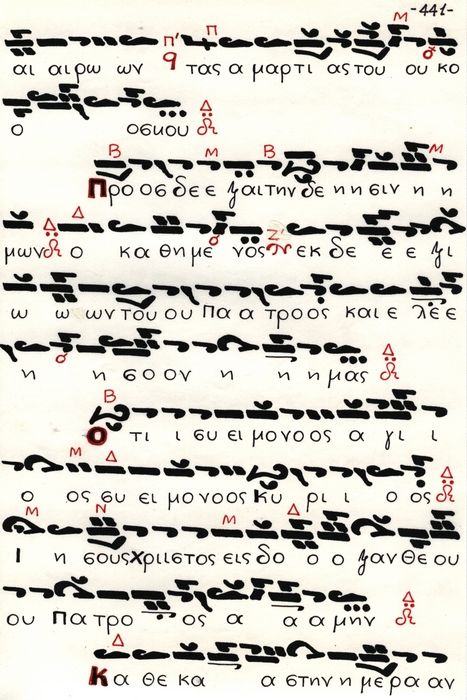 -441-
αι αιρω ων τας α μαρτι ας του ου κο
ο οσμου
Προ οσ δε ε ξαι την δε η η σιν η η
μων ο κα θη με νος εκ δε ε ε ξι
ω ω ων του ου Πα α τρο ος και ε λε ε
η η σο ον η η η μας
Ο τι ι συ ει μο νο ος α γι ι
ο ος συ ει μο νο ος Κυ ρι ι ο ος
Ι η σους Χρι ιστος εις δο ο ο ξαν Θε ου
ου Πα τρο ος α α α μην
Κα θε κα α στην η με ρα αν